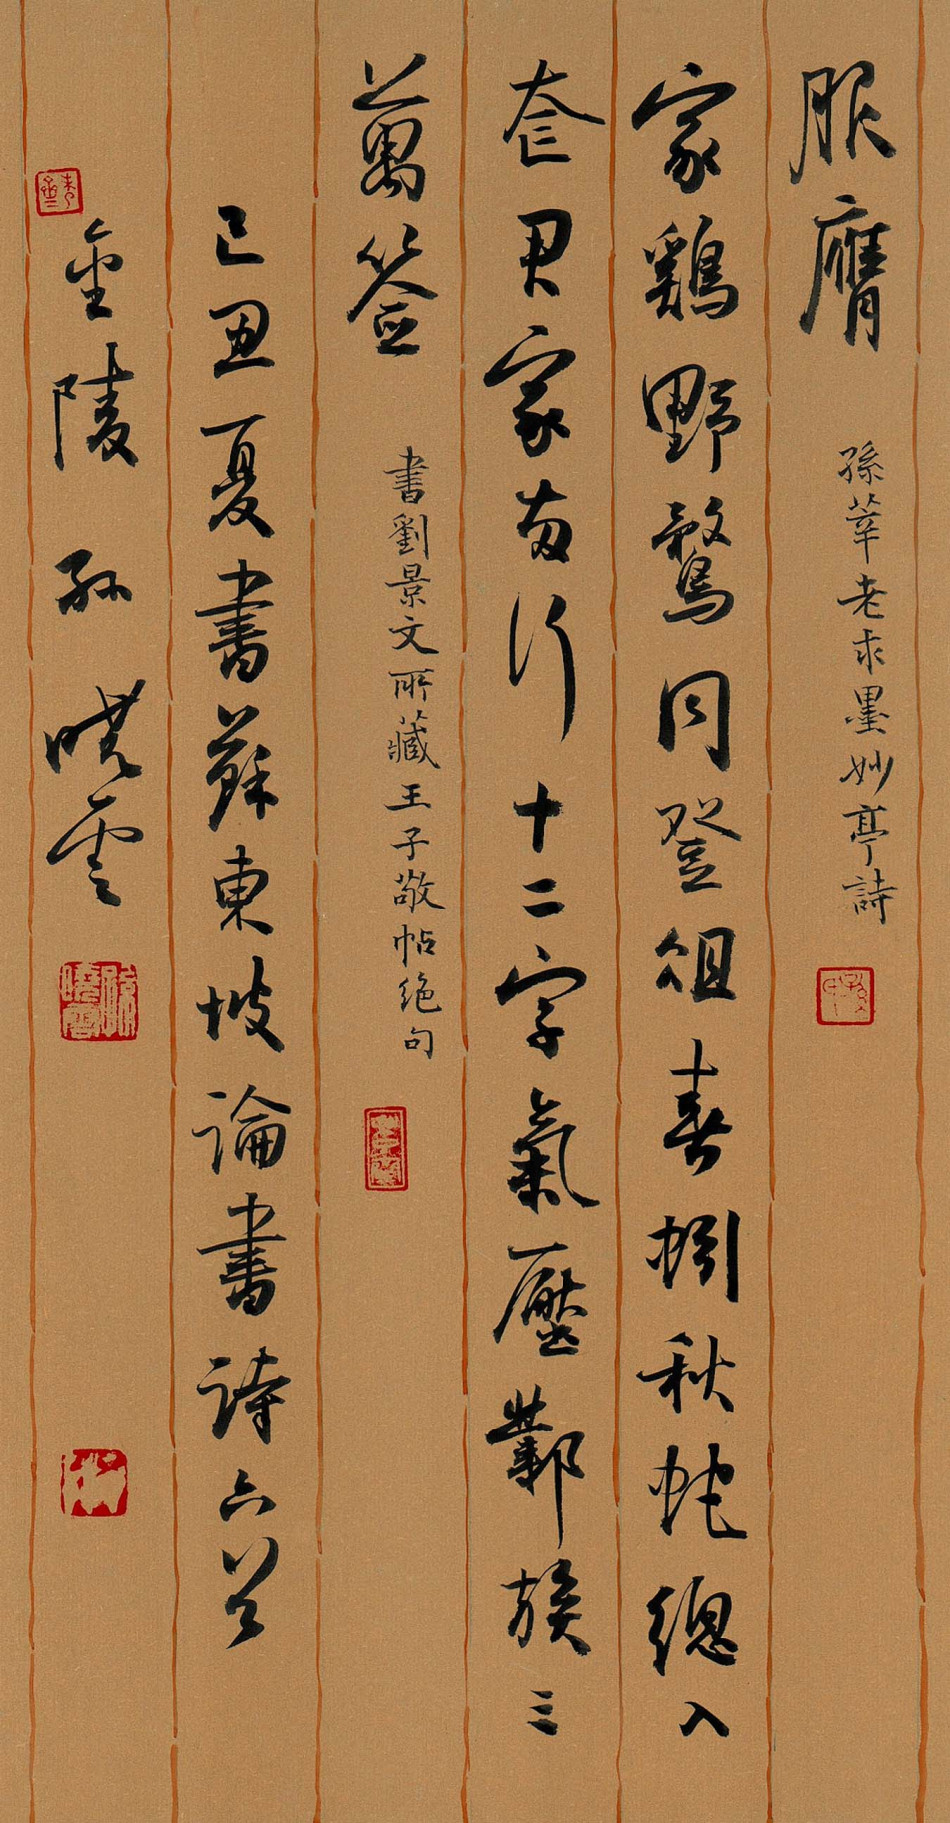 服膺
孫莘老求墨妙亭詩
家鷄野鶩同登俎春蚓秋蛇總入
奁君家两行十二字氣壓鄴族三
萬签
書劉景文所藏王子敬帖絶句
己丑夏書蘇東坡論書詩六首
金陵孫曉雲